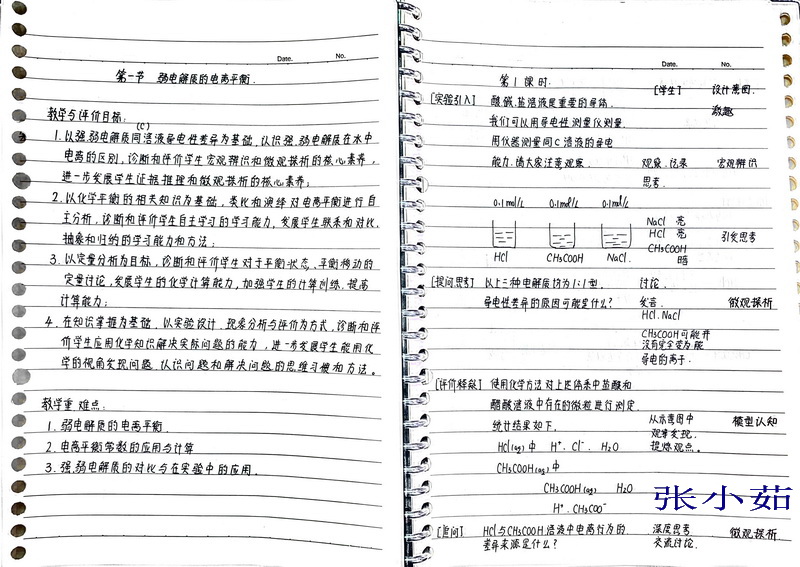 Date. No.
第一节 弱电解质的电离平衡.
教学与评价目标:
(C)
1. 以强.弱电解质同溶液导电性差异为基础,认识强.弱电解质在水中
电离的区别,诊断和评价学生宏观辨识和微观探析的核心素养,
进一步发展学生证据推理和微观探析的核心素养;
2. 以化学平衡的相关知识为基础,类比和演绎对电离平衡进行自
主分析,诊断和评价学生自主学习的学习能力,发展学生联系和对比、
抽象和归纳的学习能力和方法;
3. 以定量分析为目标,诊断和评价学生对于平衡状态、平衡移动的
定量讨论,发展学生的化学计算能力,加强学生的计算训练,提高
计算能力;
4. 在知识掌握为基础,以实验设计、现象分析与评价为方式,诊断和评
价学生应用化学知识解决实际问题的能力,进一步发展学生能用化
学的视角发现问题、认识问题和解决问题的思维习惯和方法。
教学重难点:
1. 弱电解质的电离平衡.
2. 电离平衡常数的应用与计算
3. 强.弱电解质的对比与在实验中的应用.
Date. No.
第1课时.
[学生] 设计意图.
[实验引入] 酸.碱.盐溶液是重要的导体. 激趣
我们可以用导电性测量仪测量.
用仪器测量同C溶液的导电
能力.请大家注意观察. 观察.记录 宏观辨识
思考.
0.1mol/L 0.1mol/L 0.1mol/L
NaCl 亮
HCl 亮 引发思考
CH₃COOH
暗
HCl CH₃COOH NaCl
[提问思考] 以上三种电解质均为1:1型. 讨论.
导电性差异的原因可能是什么? 发言. 微观探析
HCl.NaCl
CH₃COOH可能并
没有完全变为能
导电的离子.
[评价释疑] 使用化学方法对上述体系中盐酸和
醋酸溶液中存在的微粒进行测定.
统计结果如下. 从示意图中 模型认知
观察发现.
HCl(aq)中 H⁺. Cl⁻. H₂O 提炼观点。
CH₃COOH(aq)中
CH₃COOH(aq) H₂O
H⁺. CH₃COO⁻
张小茹
[追问] HCl与CH₃COOH溶液中电离行为的 深度思考 微观探析
差异来源是什么? 交流讨论.